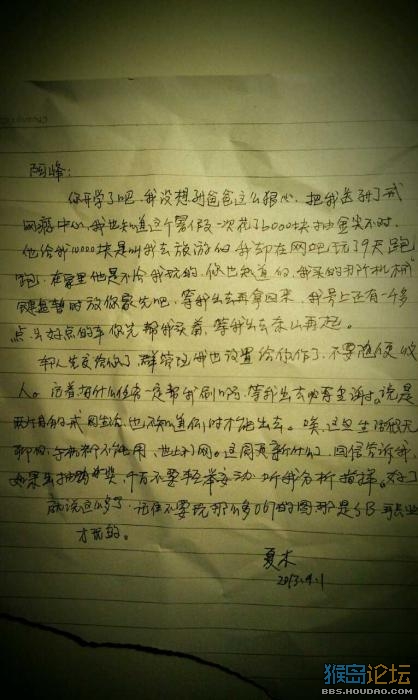 陌峰:
你开学了吧,我没想到爸爸这么狠心,把我送到了戒
网瘾中心,我也知道这个暑假一次花了6000块抽金尖不对,
他给我10000块是叫我去旅游的我却在网吧玩了9天跑
跑,在家里他是不给我玩的,你也知道的,我买的
键盘暂时放你家先吧,等我出去再拿回来,我号上还有一个多
点头好点的车你先帮我买着,等我出去东山再起。
车队先交给你了,群管理我也设置给你作了,不要随便收
人。活着有什么任务一定帮我刷啊,等我出去必有重谢。说是
两个月的戒网生活,也不知道何时才能出去。唉,这里生活很无
聊啊,手机都不能用,也上不了网。这周更新什么了,回信告诉我,
如果出抽奖,千万不要轻举妄动,听我分析指挥。好了
就说这么多了,记住不要玩那么多的图那是SB
才玩的。
夏木
2013.9.1
猴岛论坛
BBS.HOUDAO.COM